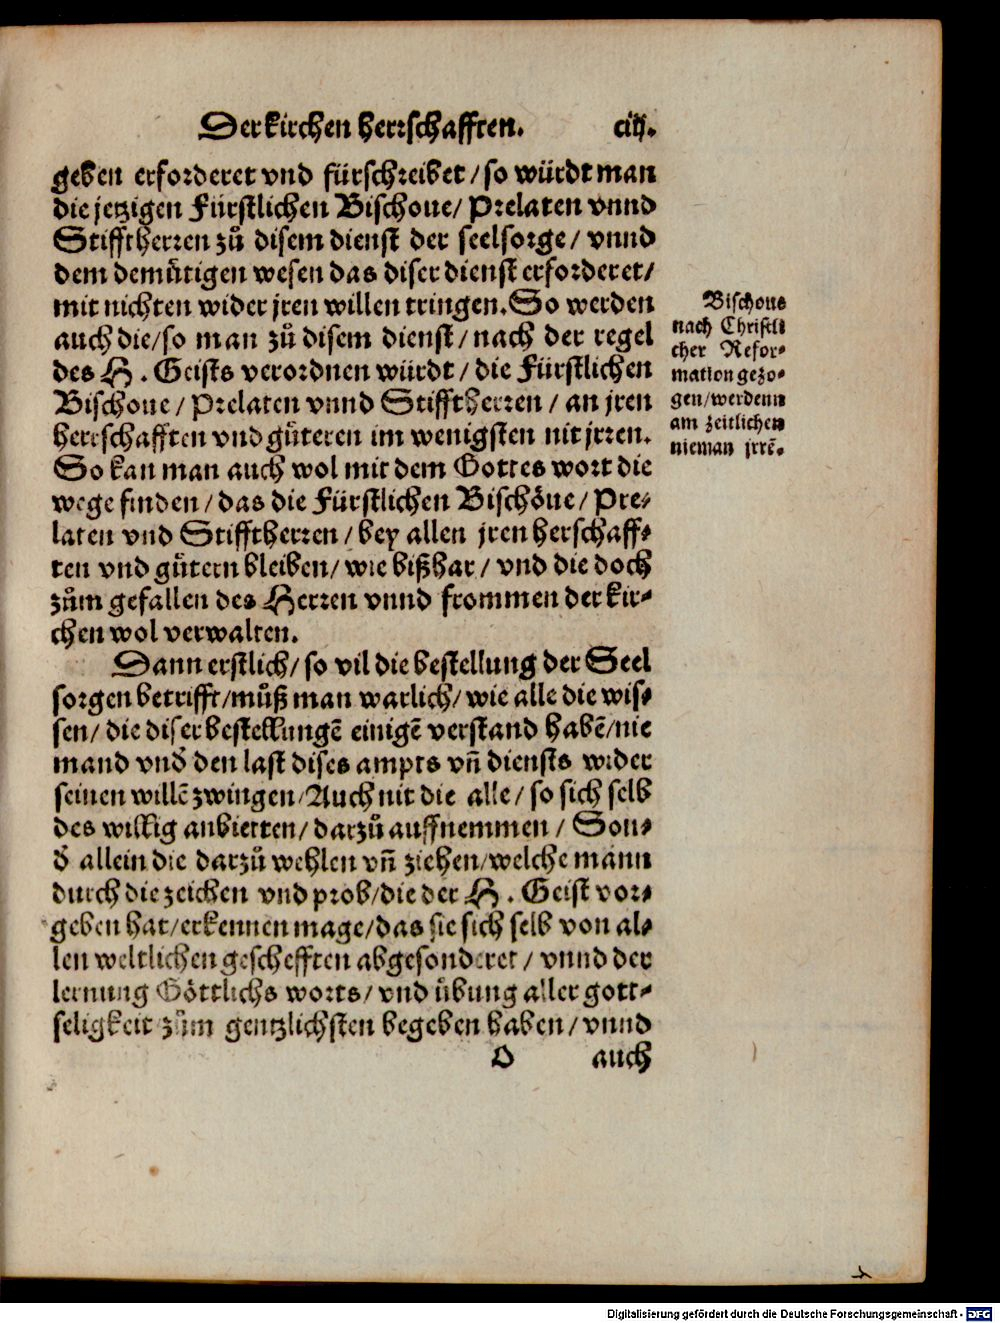 Der kirchen herrschafften. ciij.
geben erforderet vnd fürschreibet / so würdt man
die jetzigen Fürstlichen Bischoue / Prelaten vnnd
Stifftherren zů disem dienst der seelsorge / vnnd
dem demůtigen wesen das diser dienst erforderet /
mit nichten wider jren willen tringen. So werden
auch die / so man zů disem dienst / nach der regel
des H. Geists verordnen würdt / die Fürstlichen
Bischoue / Prelaten vnnd Stifftherren / an jren
herrschafften vnd gůteren im wenigsten nit jrren.
So kan man auch wol mit dem Gottes wort die
wege finden / das die Fürstlichen Bischöue / Pre-
laten vnd Stifftherren / bey allen jren herschaff-
ten vnd gůtern bleiben / wie bißhar / vnd die doch
zům gefallen des Herren vnnd frommen der kir-
chen wol verwalten.
Dann erstlich / so vil die bestellung der Seel
sorgen betrifft / můß man warlich / wie alle die wis-
sen / die diser bestellungē einigē verstand habē / nie
mand vnd̕ den last dises ampts vñ diensts wider
seinen willē zwingen / Auch nit die alle / so sich selb
des willig anbietten / darzů auffnemmen / Son-
d̕ allein die darzů wehlen vñ ziehen / welche mann
durch die zeichen vnd prob / die der H. Geist vor-
geben hat / erkennen mage / das sie sich selb von al-
len weltlichen geschefften abgesonderet / vnnd der
lernung Göttlichs worts / vnd übung aller gott-
seligkeit zům gentzlichsten begeben haben / vnnd
O auch
Bischoue
nach Christli
cher Refor-
mation gezo-
gen / werdenn
am zeitlichen
nieman jrrē.
Digitalisierung gefördert durch die Deutsche Forschungsgemeinschaft - DFG